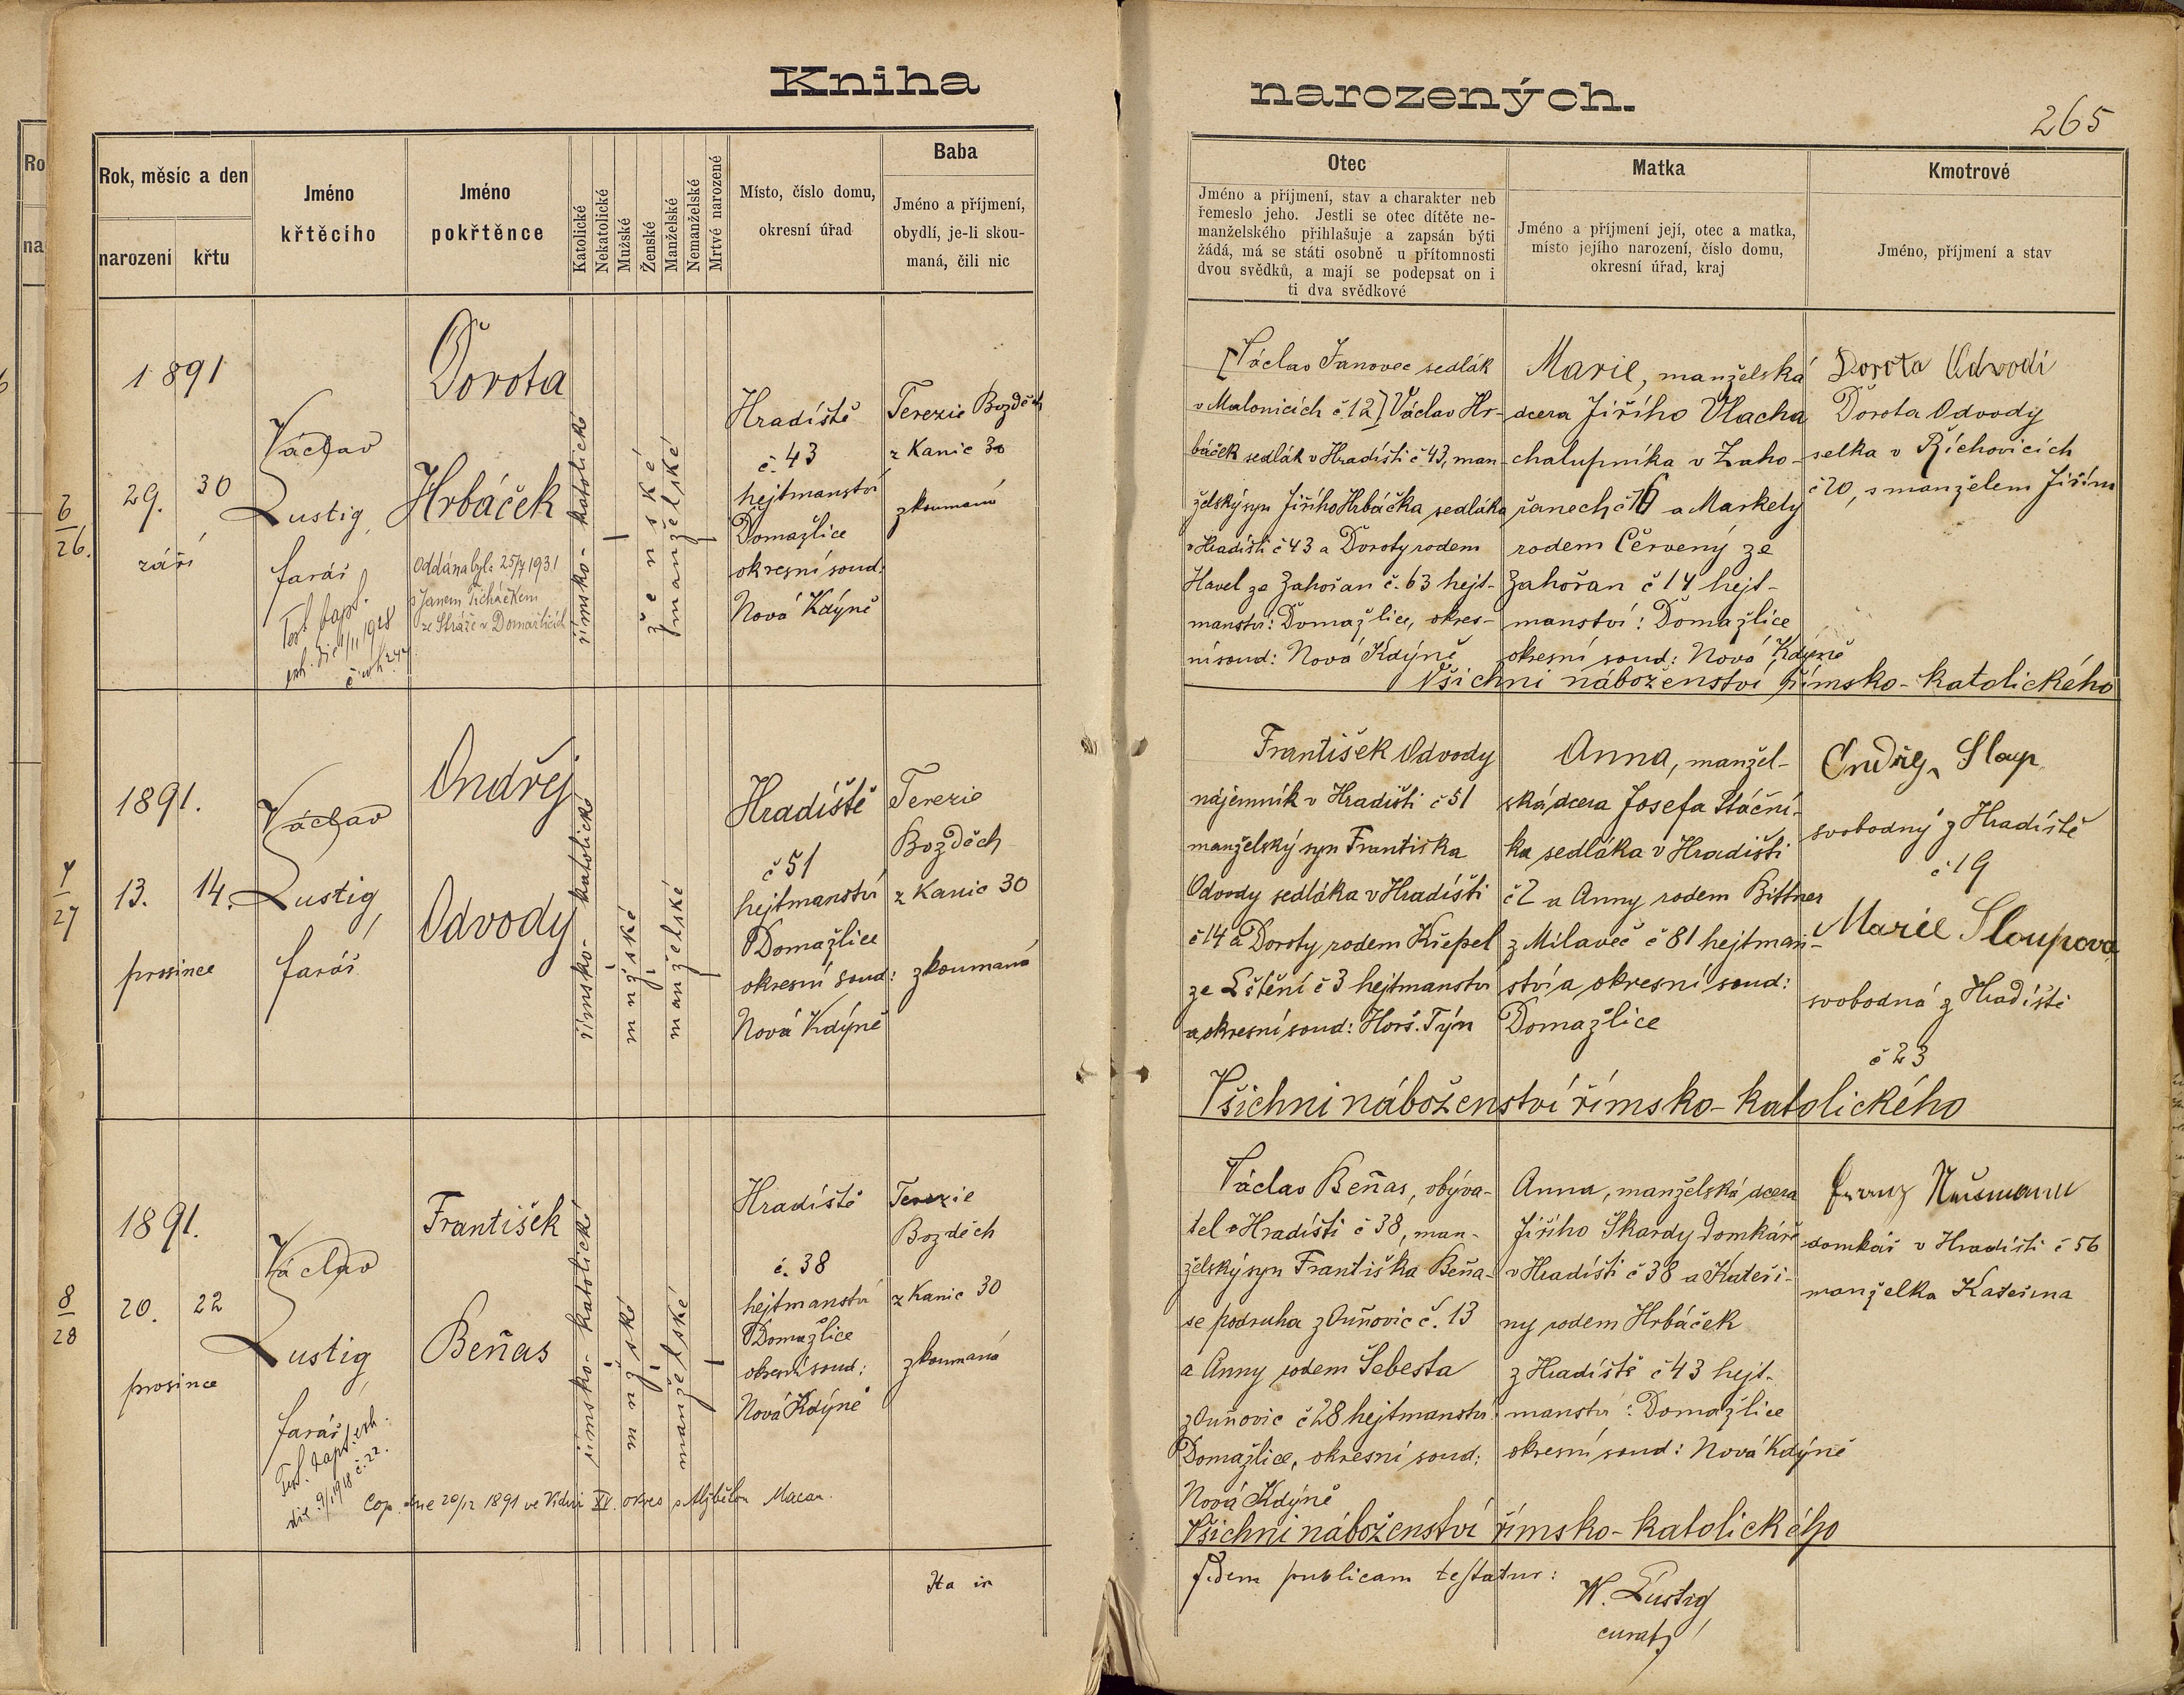 Kniha narozených.
265
Rok, měsíc a den
narození
křtu
Jméno
křtěcího
Jméno
pokřtěnce
Katolické
Nekatolické
Mužské
Ženské
Manželské
Nemanželské
Mrtvé narozené
Místo, číslo domu,
okresní úřad
Baba
Jméno a příjmení,
obydlí, je-li skou-
maná, čili nic
Otec
Jméno a příjmení, stav a charakter neb
řemeslo jeho. Jestli se otec dítěte ne-
manželského přihlašuje a zapsán býti
žádá, má se státi osobně u přítomnosti
dvou svědků, a mají se podepsat on i
ti dva svědkové
Matka
Jméno a příjmení její, otec a matka,
místo jejího narození, číslo domu,
okresní úřad, kraj
Kmotrové
Jméno, příjmení a stav
6
26.
1891
29.
30
září
Václav
Lustig,
farář
Dorota
Hrbáček
Oddána byla 25/7 1931
s Janem Ticháčkem
ze Stráže u Domažlic
římsko-katolické
ženské
manželské
Hradiště
č. 43
hejtmanství
Domažlice
okresní soud:
Nová Kdýně
Terezie Bozděch
z Kanic 30
zkoumaná
[Václav Janovec sedlák
v Malonicích č 12] Václav Hr-
báček sedlák v Hradišti č 43, man-
želský syn Jiřího Hrbáčka sedláka
v Hradišti č 43 a Doroty rodem
Havel ze Zahořan č. 63 hejt-
manství: Domažlice, okres-
ní soud: Nová Kdýně
Marie, manželská
dcera Jiřího Vlacha
chalupníka v Zaho-
řanech č 16 a Markety
rodem Červený ze
Zahořan č 14 hejt-
manství: Domažlice
okresní soud: Nová Kdýně
Dorota Odvodi
Dorota Odvody
selka v Říchovicích
č 20, s manželem Jiřím
Všichni náboženství římsko-katolického
7
27
1891.
13.
14.
prosince
Václav
Lustig,
farář
Ondřej
Odvody
římsko-katolické
mužské
manželské
Hradiště
č 51
hejtmanství
Domažlice
okresní soud:
Nová Kdýně
Terezie
Bozděch
z Kanic 30
zkoumaná
František Odvody
nájemník v Hradišti č 51
manželský syn Františka
Odvody sedláka v Hradišti
č 14 a Doroty rodem Křepel
ze Lštění č 3 hejtmanství
a okresní soud: Horš. Týn
Anna, manžel-
ská dcera Josefa Ptáční-
ka sedláka v Hradišti
č 2 a Anny rodem Bittner
z Milaveč č 81 hejtman-
ství a okresní soud:
Domažlice
Ondřej Sloup
svobodný z Hradiště
č 19
Marie Sloupova
svobodná z Hradiště
č 23
Všichni náboženství římsko-katolického
8
28
1891.
20.
22
prosince
Václav
Lustig,
farář
František
Beňas
římsko-katolické
mužské
manželské
Hradiště
č. 38
hejtmanství
Domažlice
okresní soud:
Nová Kdýně
Terezie
Bozděch
z Kanic 30
zkoumaná
Václav Beňas, obýva-
tel v Hradišti č 38, man-
želský syn Františka Beňa-
se podruha z Ouňovic č. 13
a Anny rodem Šebesta
z Ouňovic č 28 hejtmanství:
Domažlice, okresní soud:
Nová Kdýně
Anna, manželská dcera
Jiřího Skardy domkáře
v Hradišti č 38 a Kateři-
ny rodem Hrbáček
z Hradiště č 43 hejt-
manství: Domažlice
okresní soud: Nová Kdýně
Franz
domkář v Hradišti č 56
manželka Kateřina
Cop. dne 20/12 1891 ve Vídni XV. okres s Macan
Všichni náboženství římsko-katolického
Ita in
fidem publicam testatur:
W. Lustig,
curat